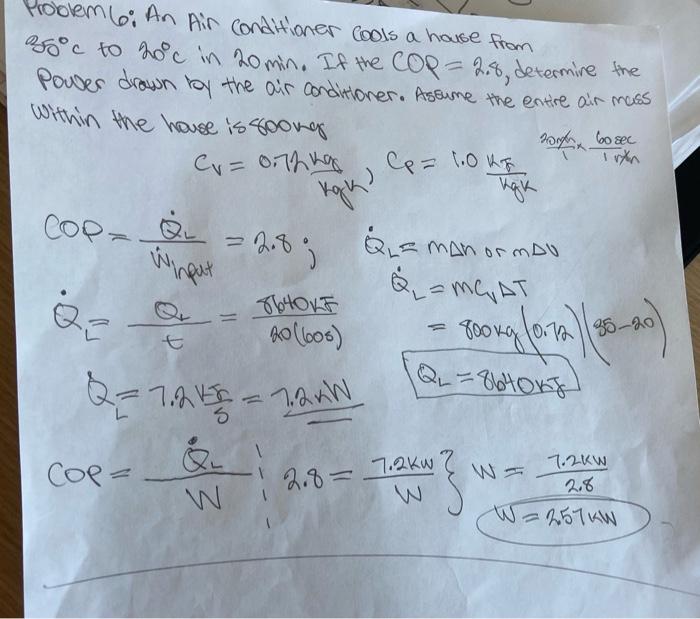 Problem 6: An Air conditioner cools a house from
35°C to 20°C in 20min. If the COP = 2.8, determine the
Power drawn by the air conditioner. Assume the entire air mass
within the house is 800kg
Cv = 0.72 , Cp = 1.0 kJ/kgK
20min/1 × 60sec/1min
COP = Q̇L/Ẇinput = 2.8;
Q̇L = mΔh or mΔU
Q̇L = mCvΔT
Q̇L = QL/t = 8640kJ/20(60s)
= 800kg(0.72)(35-20)
QL = 8640kJ
Q̇L = 7.2 kJ/s = 7.2kW
COP = Q̇L/W | 2.8 = 7.2kW/W } W = 7.2kW/2.8
W = 2.57kW